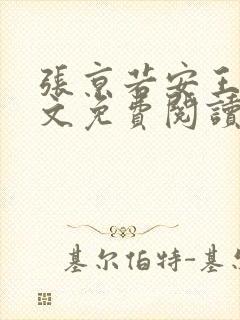 張京若安王
文免費閱讀
基尔伯特-基尔